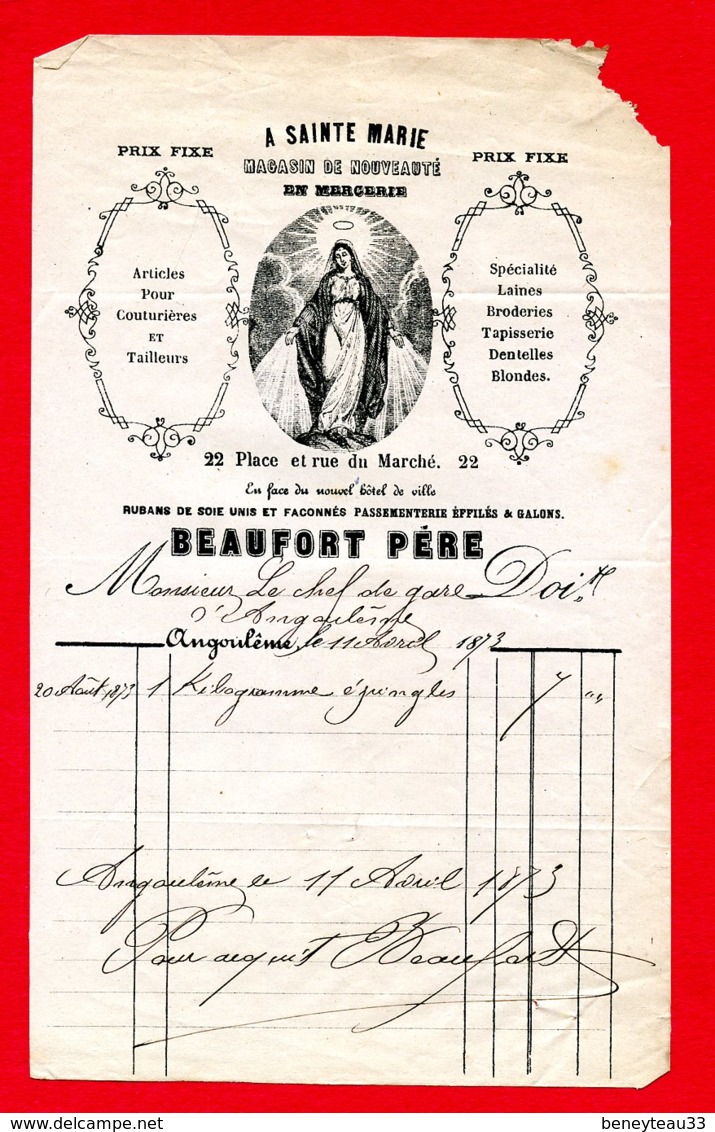 A SAINTE MARIE
MAGASIN DE NOUVEAUTÉ
EN MERCERIE
PRIX FIXE
PRIX FIXE
Articles
Pour
Couturières
ET
Tailleurs
Spécialité
Laines
Broderies
Tapisserie
Dentelles
Blondes.
22 Place et rue du Marché. 22
En face du nouvel hôtel de ville
RUBANS DE SOIE UNIS ET FACONNÉS PASSEMENTERIE ÈFFILÉS & GALONS.
BEAUFORT PÉRE
Monsieur Le chef de gare Doit
d'Angoulême
Angoulême, le 11 Avril 1873
20 Août 1873 1 Kilogramme épingles 7 "
Angoulême le 11 Avril 1873
Pour acquit Beaufort
delcampe.net
beneyteau33